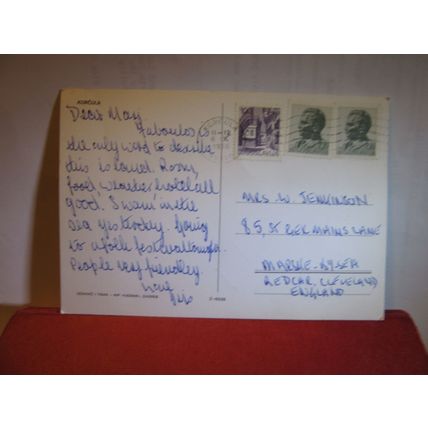 KORČULA
Dear May
Faboulos is
the only word to describe
this island. Room,
food, weather hotel all
good. Swam in the
sea yesterday. Going
to a folk festival tonight.
People very friendly.
Love
MRS. W. JENKINSON
85, ST GERMAINS LANE
MARSKE-BY-SEA
REDCAR, CLEVELAND
ENGLAND